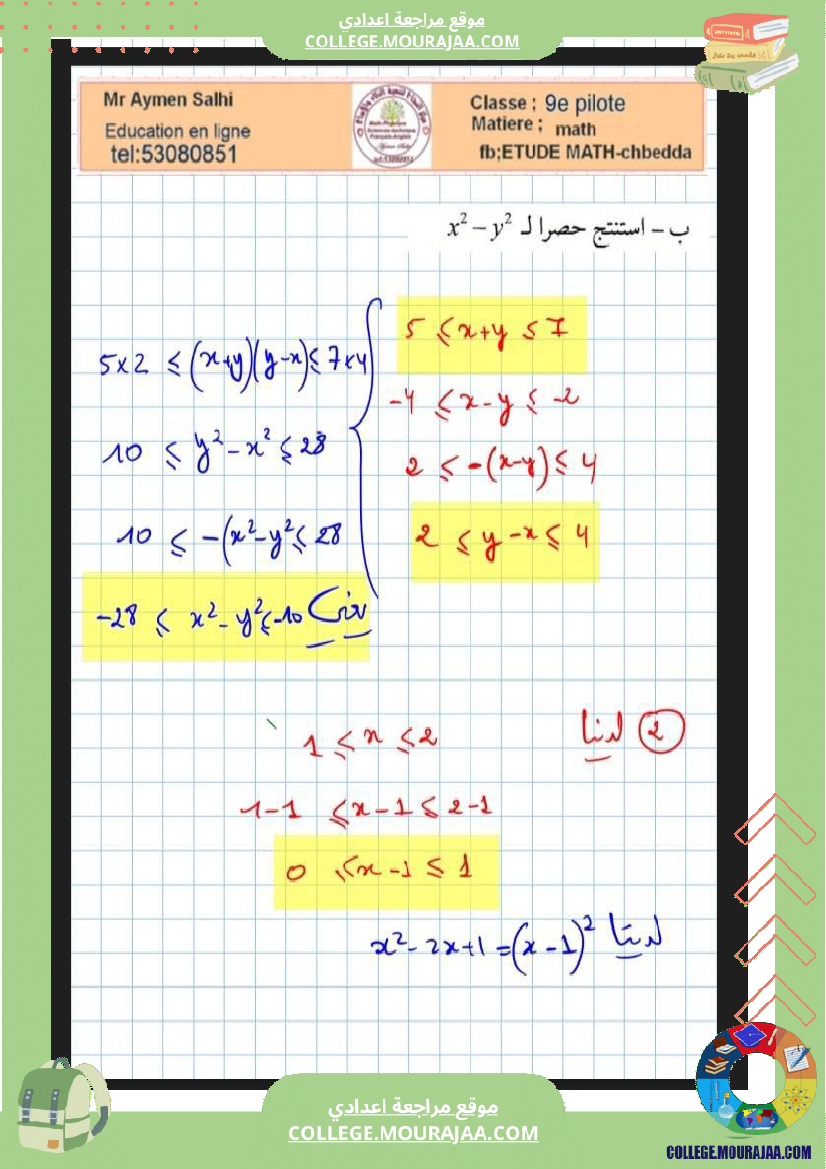 موقع مراجعة اعدادي
COLLEGE.MOURAJAA.COM
Mr Aymen Salhi
Education en ligne
tel:53080851
Classe ; 9e pilote
Matiere ; math
fb;ETUDE MATH-chbedda
ب – استنتج حصرا لـ x² − y²
5 ≤ x+y ≤ 7
-4 ≤ x-y ≤ -2
2 ≤ -(x-y) ≤ 4
2 ≤ y-x ≤ 4
5×2 ≤ (x+y)(y-x) ≤ 7×4
10 ≤ y²-x² ≤ 28
10 ≤ -(x²-y² ≤ 28
-28 ≤ x²-y² ≤ -10
2 لدينا
1 ≤ x ≤ 2
1-1 ≤ x-1 ≤ 2-1
0 ≤ x-1 ≤ 1
لدينا x²-2x+1=(x-1)²
موقع مراجعة اعدادي
COLLEGE.MOURAJAA.COM
COLLEGE.MOURAJAA.COM